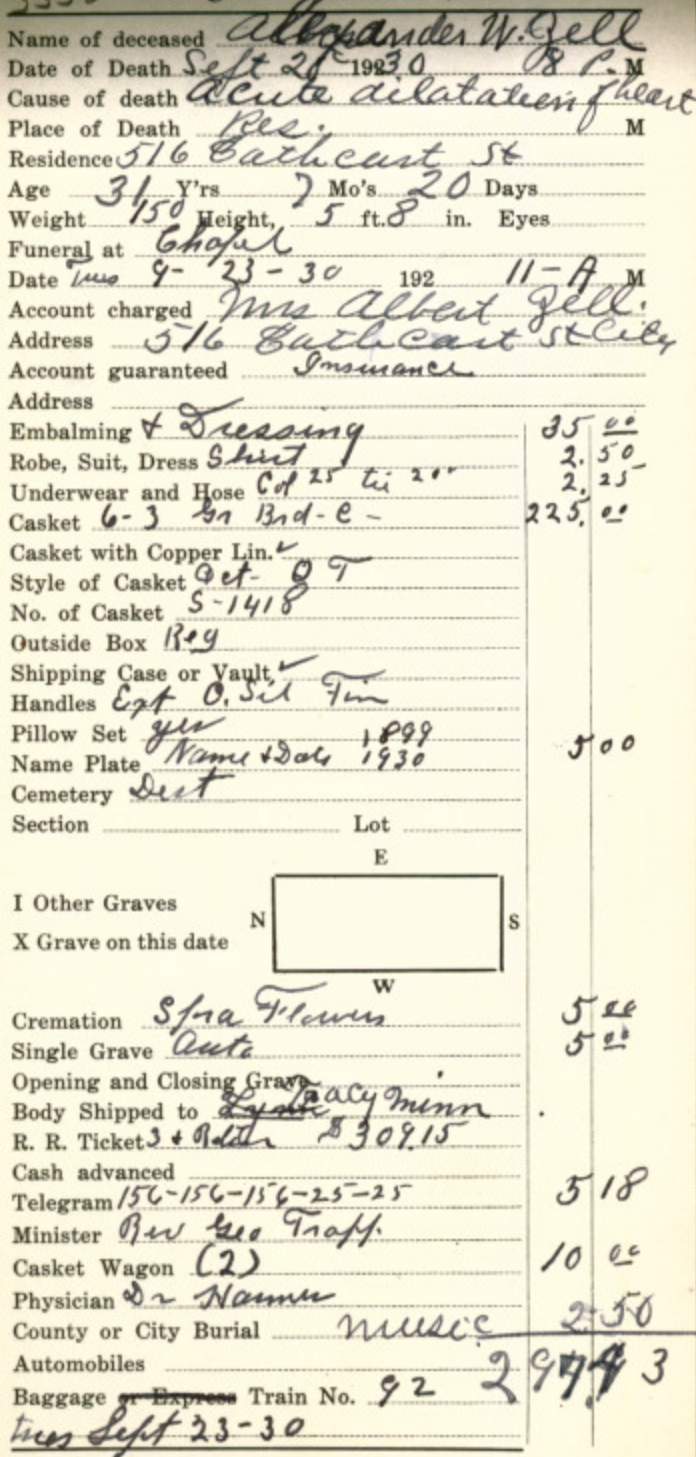 Name of deceased Alexander W. Zell
Date of Death Sept 20 1930 8 P. M
Cause of death Acute dilatation of heart
Place of Death Res. M
Residence 516 Cathcart St
Age 31 Y'rs 7 Mo's 20 Days
Weight 150 Height, 5 ft. 8 in. Eyes
Funeral at Chapel
Date Tues 9-23-30 192 11-A M
Account charged Mrs Albert Zell.
Address 516 Cathcart St City
Account guaranteed Insurance
Address
Embalming & Dressing 35 00
Robe, Suit, Dress Shirt 2.50
Underwear and Hose Col 25 tie 2 00 2.25
Casket 6-3 Gr Brd-C- 225.00
Casket with Copper Lin. ✓
Style of Casket Oct- O T
No. of Casket S-1418
Outside Box Reg
Shipping Case or Vault ✓
Handles Ext O. Sil Fin
Pillow Set yes 1899
Name Plate Name & Date 1930 5 00
Cemetery Dist
Section Lot
E
I Other Graves
N S
X Grave on this date
W
Cremation Flowers 5 00
Single Grave Auto 5 00
Opening and Closing Grave
Body Shipped to Tracy Minn
R. R. Ticket 3 & $309.15
Cash advanced
Telegram 156-156-156-25-25 5 18
Minister Rev Geo Trapp.
Casket Wagon (2) 10 00
Physician Dr
County or City Burial music 2.50
Automobiles
Baggage or Express Train No. 92
Tues Sept 23-30